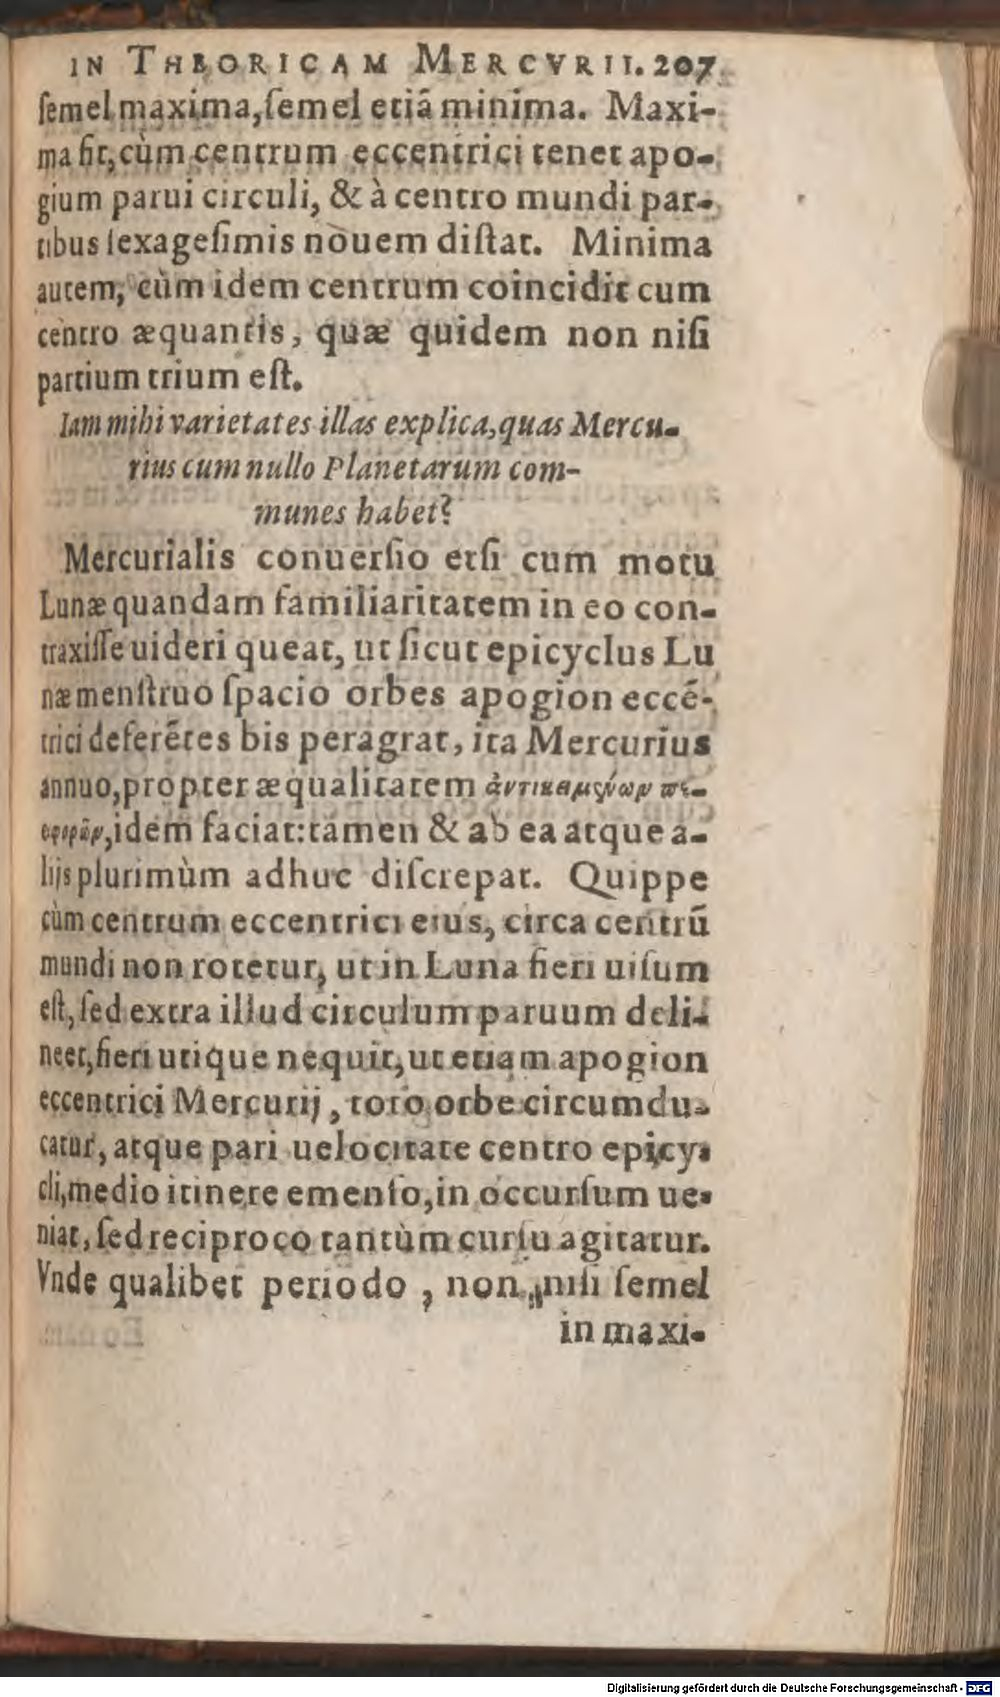 IN THEORICAM MERCVRII. 207
ſemel maxima, ſemel etiã minima. Maxi-
ma fit, cùm centrum eccentrici tenet apo-
gium parui circuli, & à centro mundi par-
tibus ſexageſimis nouem diſtat. Minima
autem, cùm idem centrum coincidit cum
centro æquantis, quæ quidem non niſi
partium trium eſt.
Iam mihi varietates illas explica, quas Mercu-
rius cum nullo Planetarum com-
munes habet?
Mercurialis conuerſio etſi cum motu
Lunæ quandam familiaritatem in eo con-
traxiſſe uideri queat, ut ſicut epicyclus Lu
næ menſtruo ſpacio orbes apogion eccẽ-
trici deferẽtes bis peragrat, ita Mercurius
annuo, propter æqualitatem
idem faciat: tamen & ab ea atque a-
lijs plurimùm adhuc diſcrepat. Quippe
cùm centrum eccentrici eius, circa centrũ
mundi non rotetur, ut in Luna fieri uiſum
eſt, ſed extra illud circulum paruum deli-
neet, fieri utique nequit, ut etiam apogion
eccentrici Mercurij, toto orbe circumdu-
catur, atque pari uelocitate centro epicy-
cli, medio itinere emenſo, in occurſum ue-
niat, ſed reciproco tantùm curſu agitatur.
Vnde qualibet periodo, non niſi ſemel
in maxi-
Digitalisierung gefördert durch die Deutsche Forschungsgemeinschaft - DFG